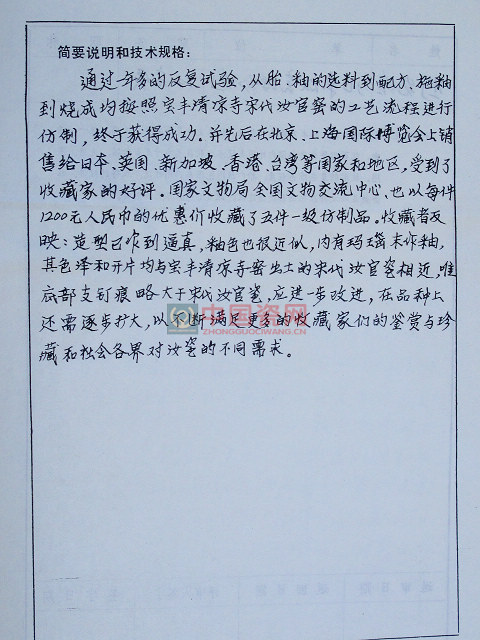 简要说明和技术规格：
通过一年多的反复试验，从胎、釉的选料到配方、拖釉
到烧成均按照宝丰清凉寺宋代汝官窑的工艺流程进行
仿制，终于获得成功。并先后在北京、上海国际博览会上销
售给日本、英国、新加坡、香港、台湾等国家和地区，受到了
收藏家的好评。国家文物局全国文物交流中心、也以每件
1200元人民币的优惠价收藏了五件一级仿制品。收藏者反
映：造型已作到逼真，釉色也很近似，内有玛瑙末作釉，
其色泽和开片均与宝丰清凉寺窑出土的宋代汝官瓷相近，唯
底部支钉痕略大于宋代汝官瓷，应进一步改进，在品种上
还需逐步扩大，以不断满足更多的收藏家们的鉴赏与珍
藏和社会各界对汝瓷的不同需求。
中国瓷网
ZHONGGUOCIWANG.CN